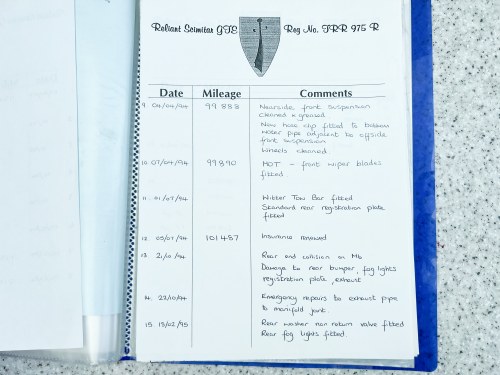 Reliant Scimitar GTE Reg No. TRR 975 R
Date Mileage Comments
9. 04/04/94 99 883 Nearside front suspension
cleaned & greased
New hose clip fitted to bottom
water pipe adjacent to offside
front suspension
Wheels cleaned
10. 07/04/94 99890 MOT - front wiper blades
fitted.
11. 01/07/94 Witter Tow Bar fitted
Standard rear registration plate
fitted
12. 05/07/94 101457 Insurance renewed
13. 21/10/94 Rear end collision on M6
Damage to rear bumper, fog lights
registration plate, exhaust
14. 22/10/94 Emergency repairs to exhaust pipe
to manifold joint.
15. 13/02/95 Rear washer non return valve fitted
Rear fog lights fitted.